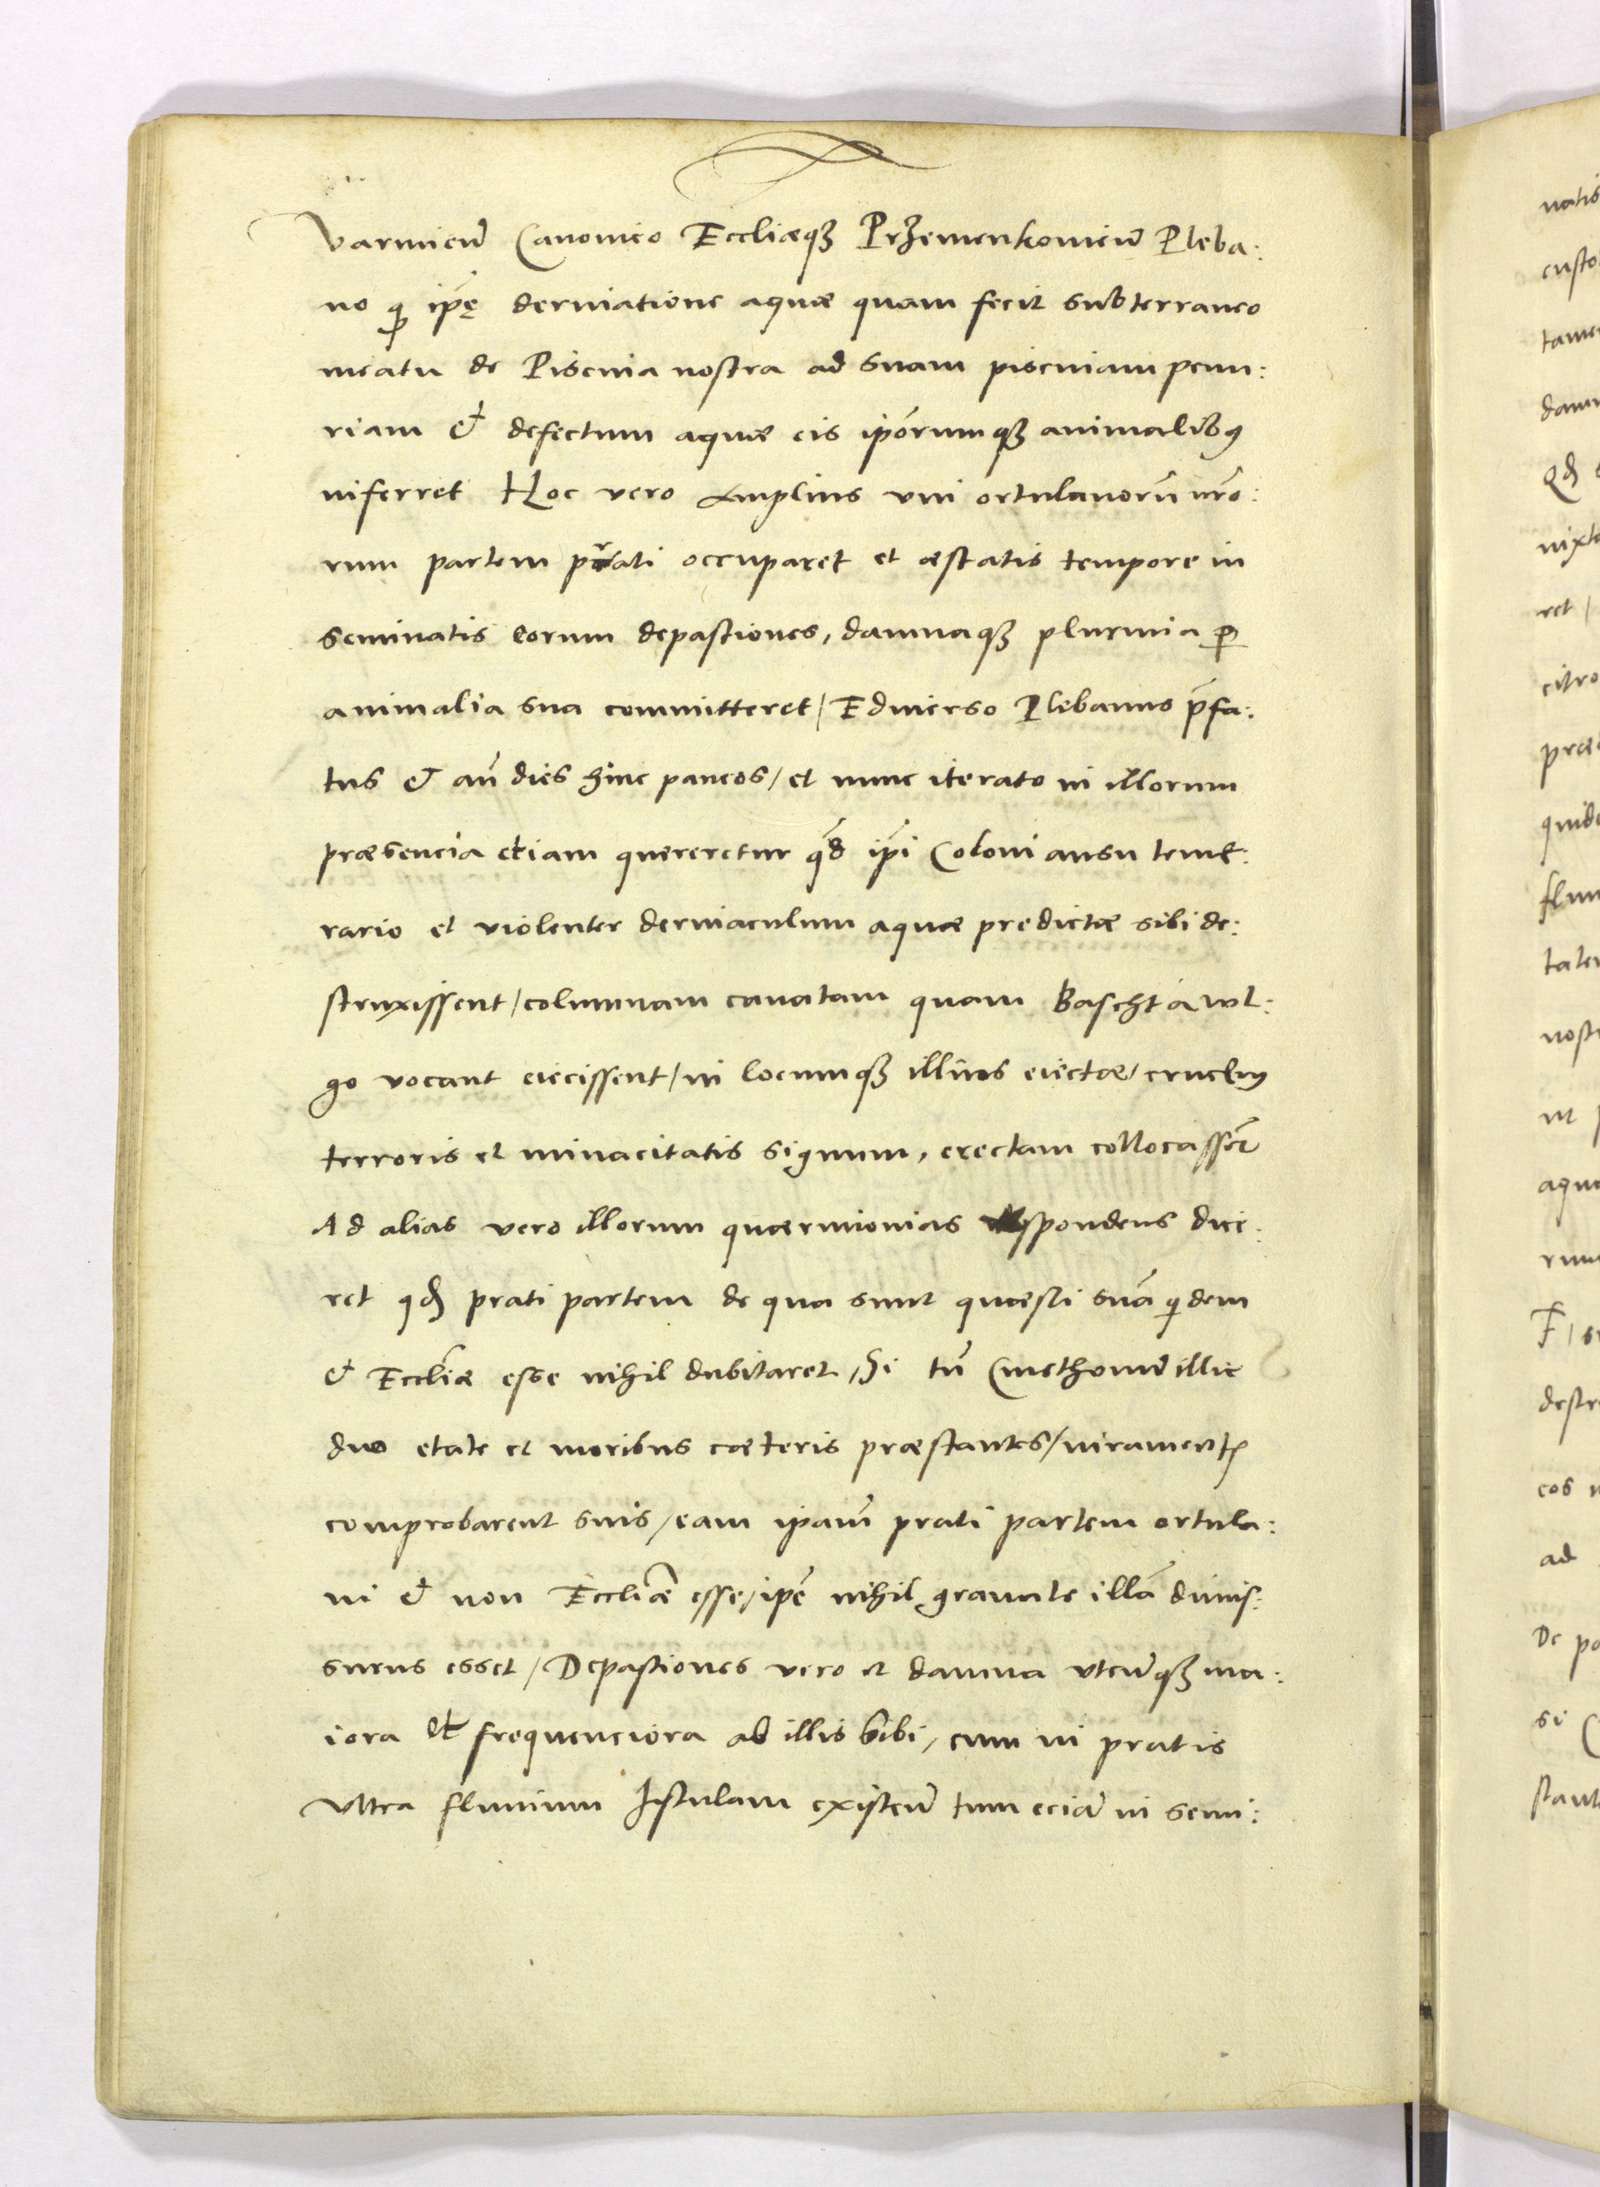 Varmien̄ Canonico Eccliæqꝫ Przemenkowien̄ Pleba:
no ꝙ ip̄ę deriuatione aquæ quam fecit subterraneo
meatu de Piscina nostra ad suam pisciniam penu:
riam & defectum aquæ eis ip̄orumqꝫ animalibꝰ
inferret Hoc vero Amplius vni ortulanorū nr̄o:
rum partem prati occuparet et æstatis tempore in
seminatis eorum depastiones, damnaqꝫ plurimia ꝑ
animalia sua committeret / Ediuerso Plebanus p̄fa:
tus & an̄ dies hinc paucos / et nunc iterato in illorum
præsencia etiam quereretur qd̄ ip̄i Coloni ausu teme:
rario et violenter deriuaculum aquæ predictæ sibi de:
struxissent / columnam cauatam quam Baschta wl:
go vocant eiecissent / in locumqꝫ illius eiectæ / crucem
terroris et minacitatis signum, erectam collocassent̄
Ad alias vero illorum quærimonias respondens dice:
ret qd̄ prati partem de qua sunt quæsti suā qidem
& Eccl̄iæ esse nihil dubitaret, Si tn̄ Cmethonū illic
duo etate et moribus cæteris præstantes / iuramentꝭ
comprobarent suis / eam ipam̄ prati partem ortula:
ni & non Eccliǣ esse / ipē nihil grauate illā dimis:
surus esset / Depastiones vero et damna vtcunqꝫ ma:
iora et frequenciora ab illis sibi / cum in pratis
Vltra fluuium Istulam existen̄ tum eciā in semi:
natis
custo
tamen
damn
Qd̄
nixt
ret /
citro
præ
quid
flu
tate
nost
ut
aqu
rum
destr
cos
ad
De pa
si
stant